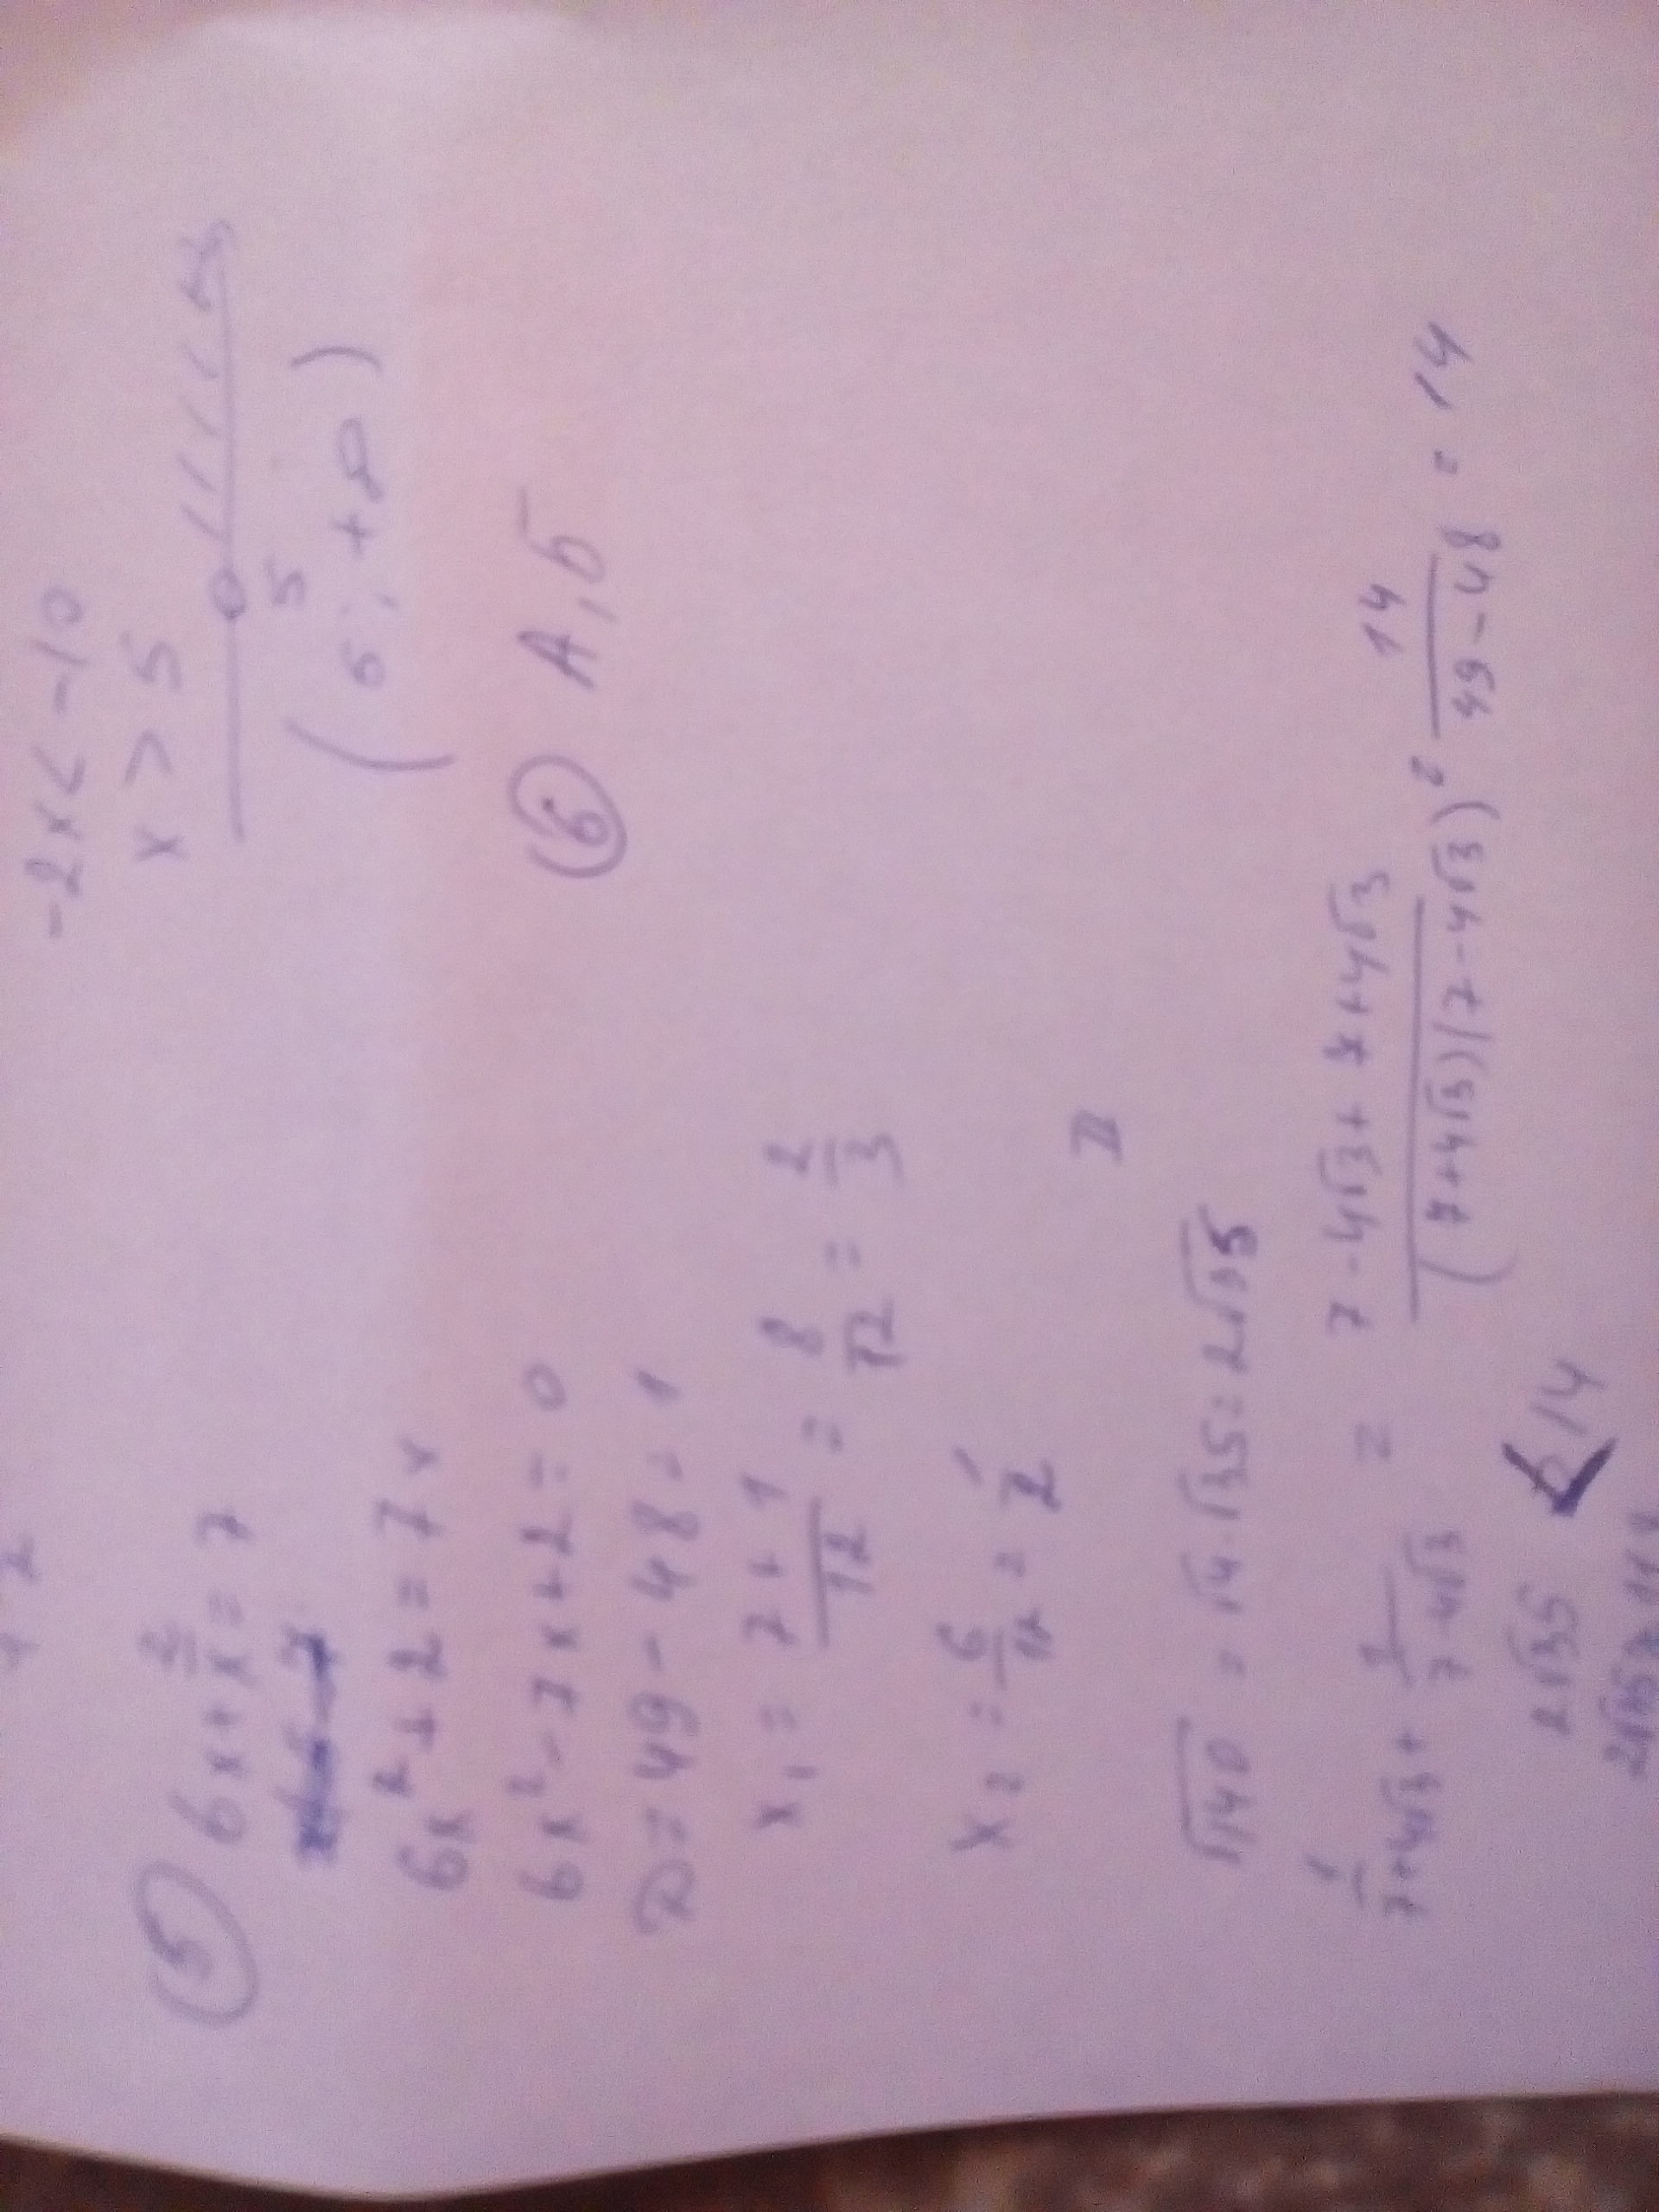 -2x < -10
x > 5
5
(5; +∞)
⑤ 6x + 2/x = 7
6x² + 2 = 7x
6x² - 7x + 2 = 0
D = 49 - 48 = 1
x₁ = (7 + 1)/12 = 8/12 = 2/3
x₂ = 6/12 = 1/2
⑥ А, Б
II
√140 = √4 · √35 = 2√35
1/(7+4√3) + 1/(7-4√3) = (7 - 4√3 + 7 + 4√3)/((7+4√3)(7-4√3)) = 14/(49-48) = 14
2√35 < 14